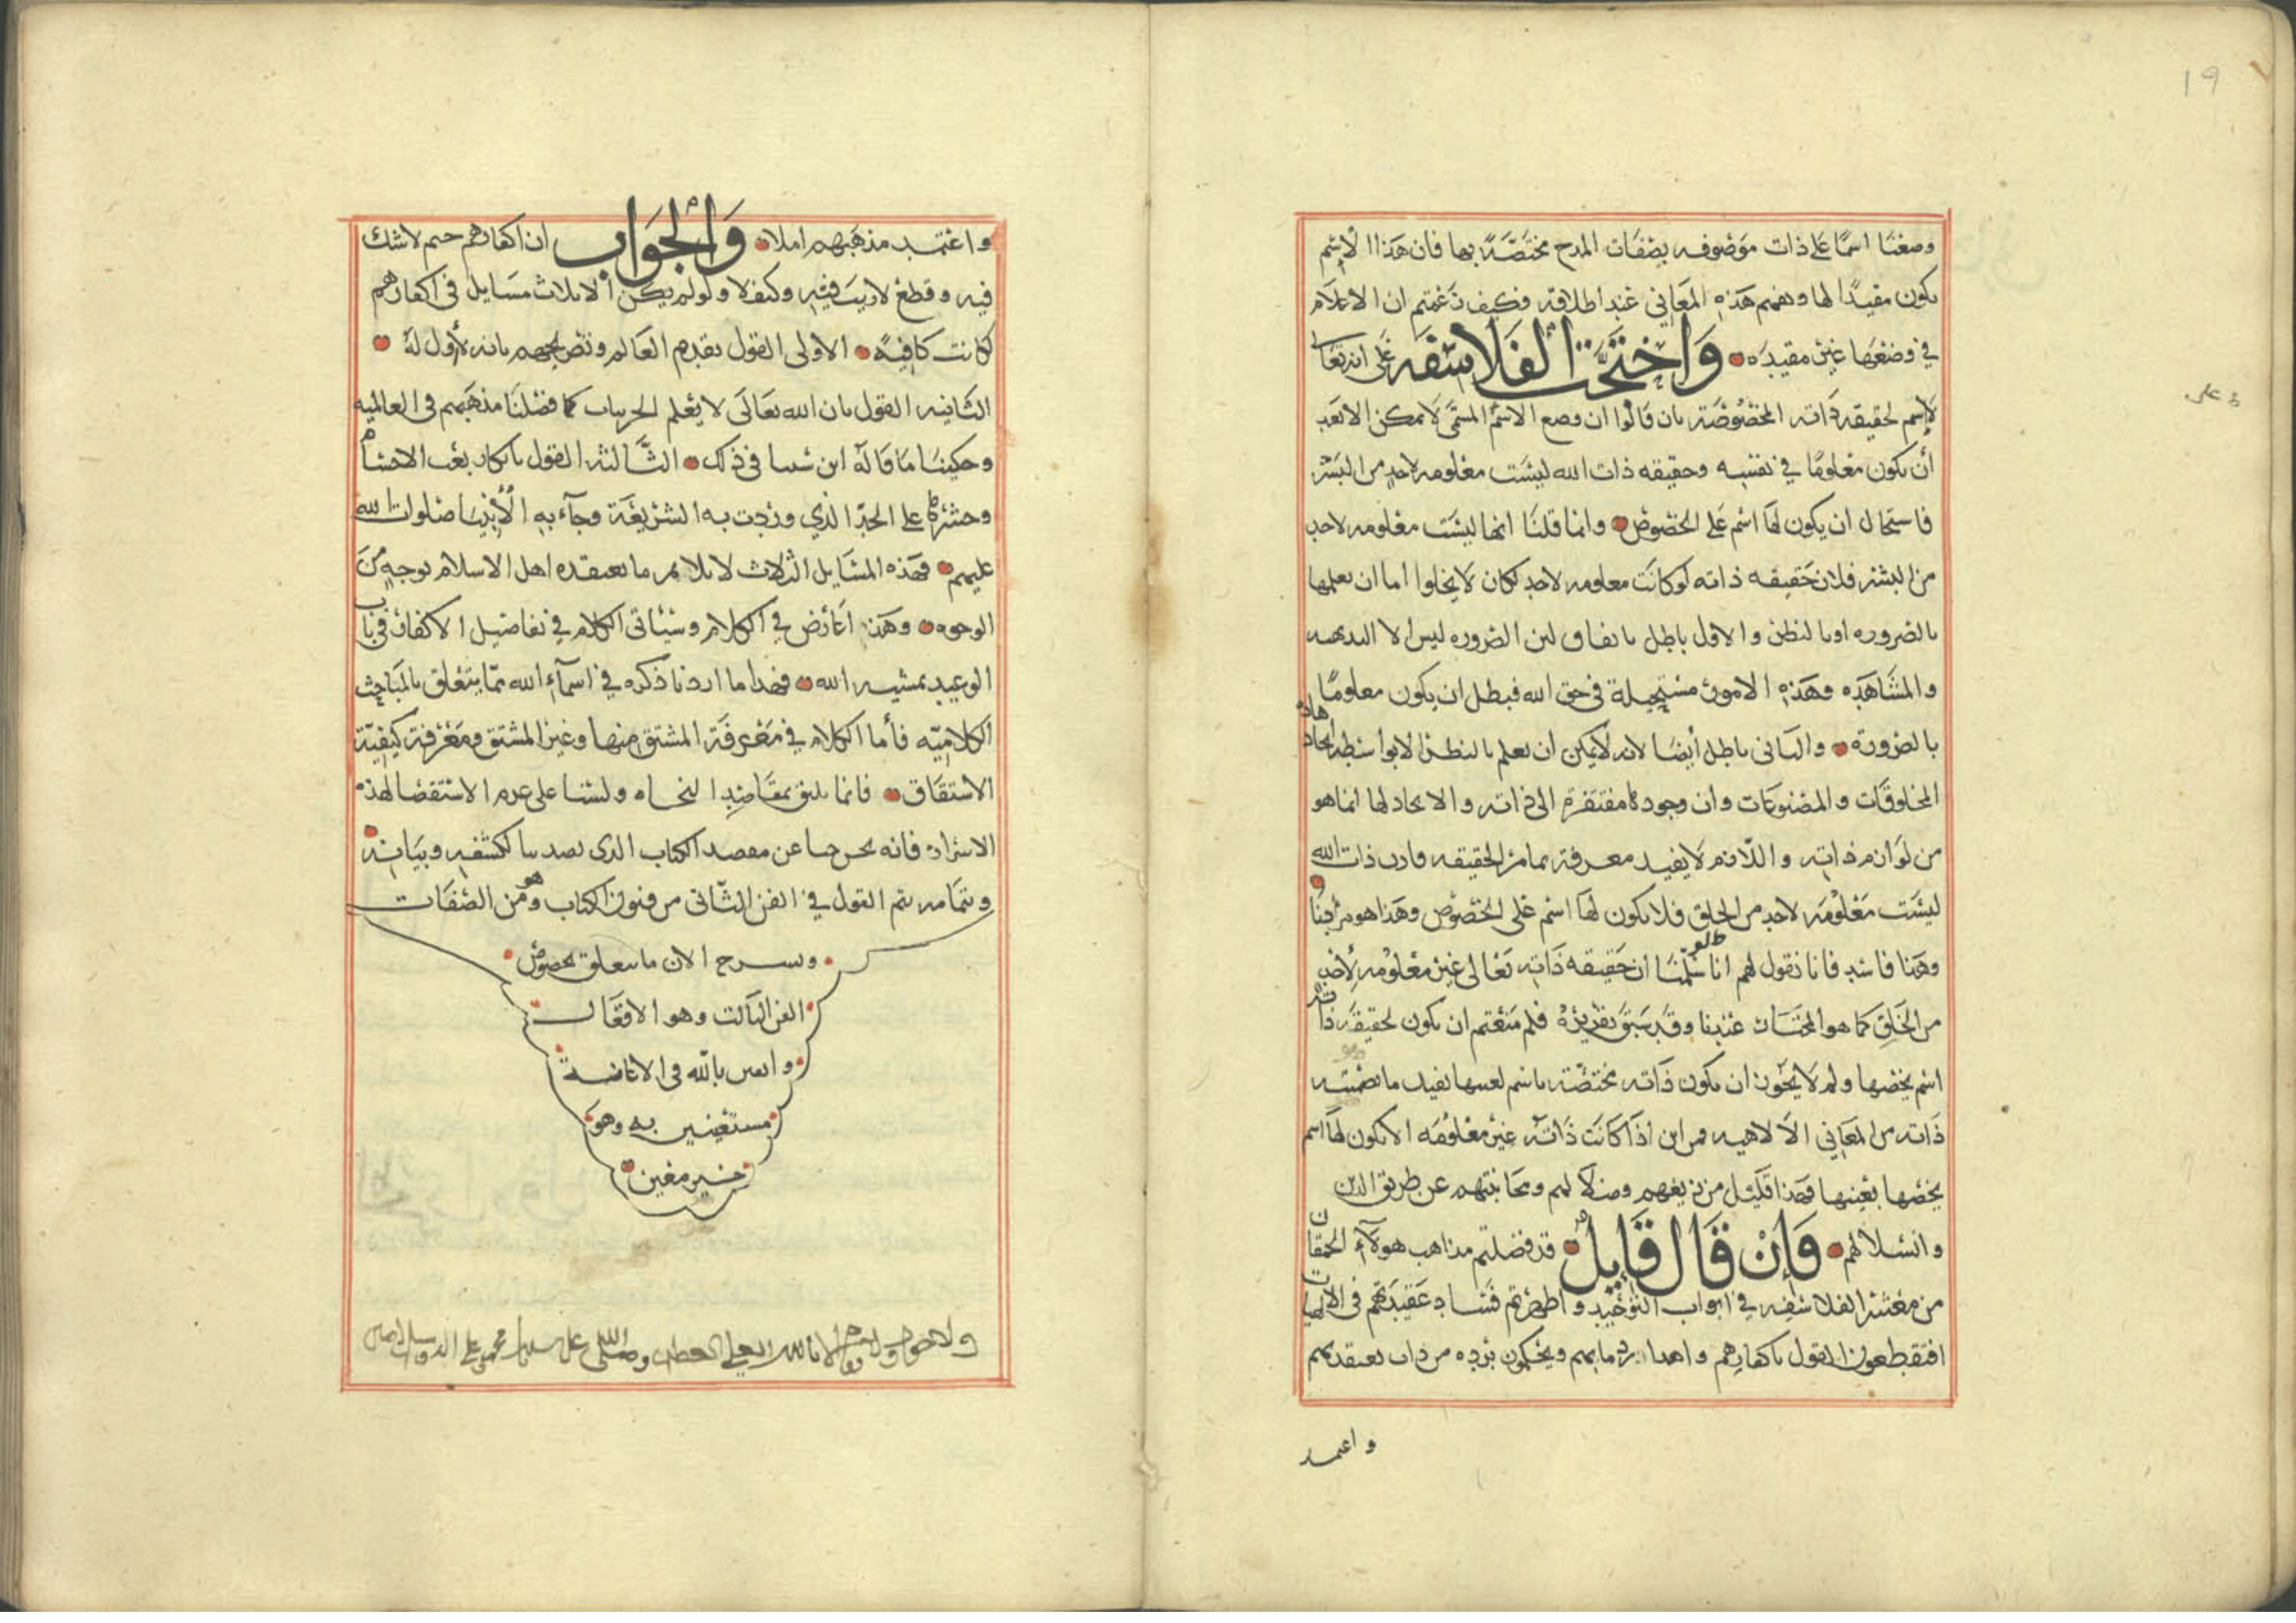 19
وضعنا اسمًا على ذات موصوفه بصفات المدح مختصّةً بها فان هذا الاسم
يكون مفيدًا لها ويفهم هذه المعاني عند اطلاقه فكيف زعمتم ان الاعلام
في وضعها غير مفيده واحتجّت الفلاسفه على انه تعالى
لا اسم لحقيقه ذاته المخصوصة بان قالوا ان وضع الاسم المسمى لا يمكن الا بعد
أن يكون معلومًا في نفسه وحقيقه ذات الله ليست معلومه لاحدٍ من البشر
فاستحال ان يكون لها اسم على الخصوص وانما قلنا انها ليست معلومه لاحدٍ
من البشر فلان حقيقه ذاته لو كانت معلومه لاحدٍ لكان لا يخلوا اما ان يعلمها
بالضروره او بالنظر والاول باطل باتفاق لان الضروره ليس الا البديهه
والمشاهده وهذه الامور مستحيلة في حق الله فبطل ان يكون معلومًا
بالضرورة والثاني باطل أيضا لانه لا يمكن ان يعلم بالنظر الا بواسطه ايجاد هذه
المخلوقات والمصنوعات وان وجودها مفتقرة الى ذاته والايجاد لها انما هو
من لوازم ذاته واللازم لا يفيد معرفة تمام الحقيقه فاذن ذات الله
ليست معلومة لاحدٍ من الخلق فلا يكون لها اسم على الخصوص وهذا هو مرادنا
وهذا فاسد فانا نقول لهم انا سلّمنا ان حقيقه ذاته تعالى غير معلومه لأحدٍ
من الخلق كما هو المختار عندنا وقد سبق تقريره فلم منعتم ان يكون لحقيقة ذاته
اسم يخصها ولم لا يجوز ان يكون ذاته مختصّة باسم لعينها يفيد ما تضمنته
ذاته من المعاني الالاهيه فمن اين اذا كانت ذاته غير معلومه الا يكون لها اسم
يخصها بعينها فهذا قليل من زيغهم وضلالهم ومجانبتهم عن طريق الدين
وانسلالهم وان قال قايل قد فصلتم مذاهب هولآء الحمقا
من معشر الفلاسفه في ابواب التوحيد واظهرتم فساد عقيدتهم في الالهيات
افتقطعون القول باكفارهم واهدار دمايهم ويحكمون برده من دان بعقيدتهم
واعتمد
واعتمد مذهبهم ام لا والجواب ان اكفارهم حتم لا شك
فيه وقطع لا ريب فيه وكيف لا ولو لم يكن الا ثلاث مسايل في اكفارهم
لكانت كافيةً الاولى القول بقدم العالم وتصريحهم بانه لا أول له
الثانيه القول بان الله تعالى لا يعلم الجزييات كما فصلنا مذهبهم في العالميه
وحكينا ما قاله ابن سينا في ذلك الثالثه القول بانكار بعث الاجسام
وحشرها على الحدّ الذي وردت به الشريعة وجآء به الأنبيا صلوات الله
عليهم فهذه المسايل الثلاث لا تلايم ما يعتقده اهل الاسلام بوجهٍ من
الوجوه وهذا عارض في الكلام وسيأتي الكلام في تفاصيل الاكفار في باب
الوعيد بمشيه الله فهذا ما اردنا ذكره في اسمآء الله مما يتعلق بالمباحث
الكلاميّه فأما الكلام في معرفة المشتق منها وغير المشتق ومعرفة كيفيّة
الاشتقاق فانما يليق بمقاصد النحاه ولسنا على عدم الاستقصا لهذه
الاسرار فانه يخرجنا عن مقصد الكتاب الذي تصدينا لكشفه وبيانه
وبتمامه يتم القول في الفن الثّاني من فنون الكتاب وهو فن الصّفات
ونشرح الان ما يتعلق بخصوص
الفن الثالث وهو الافعال
واثقين بالله في الاعانة
مستعينين به وهو
خير معين
ولا حول ولا قوة الا بالله العلي العظيم وصلى الله على سيدنا محمد وعلى اله وسلم امين